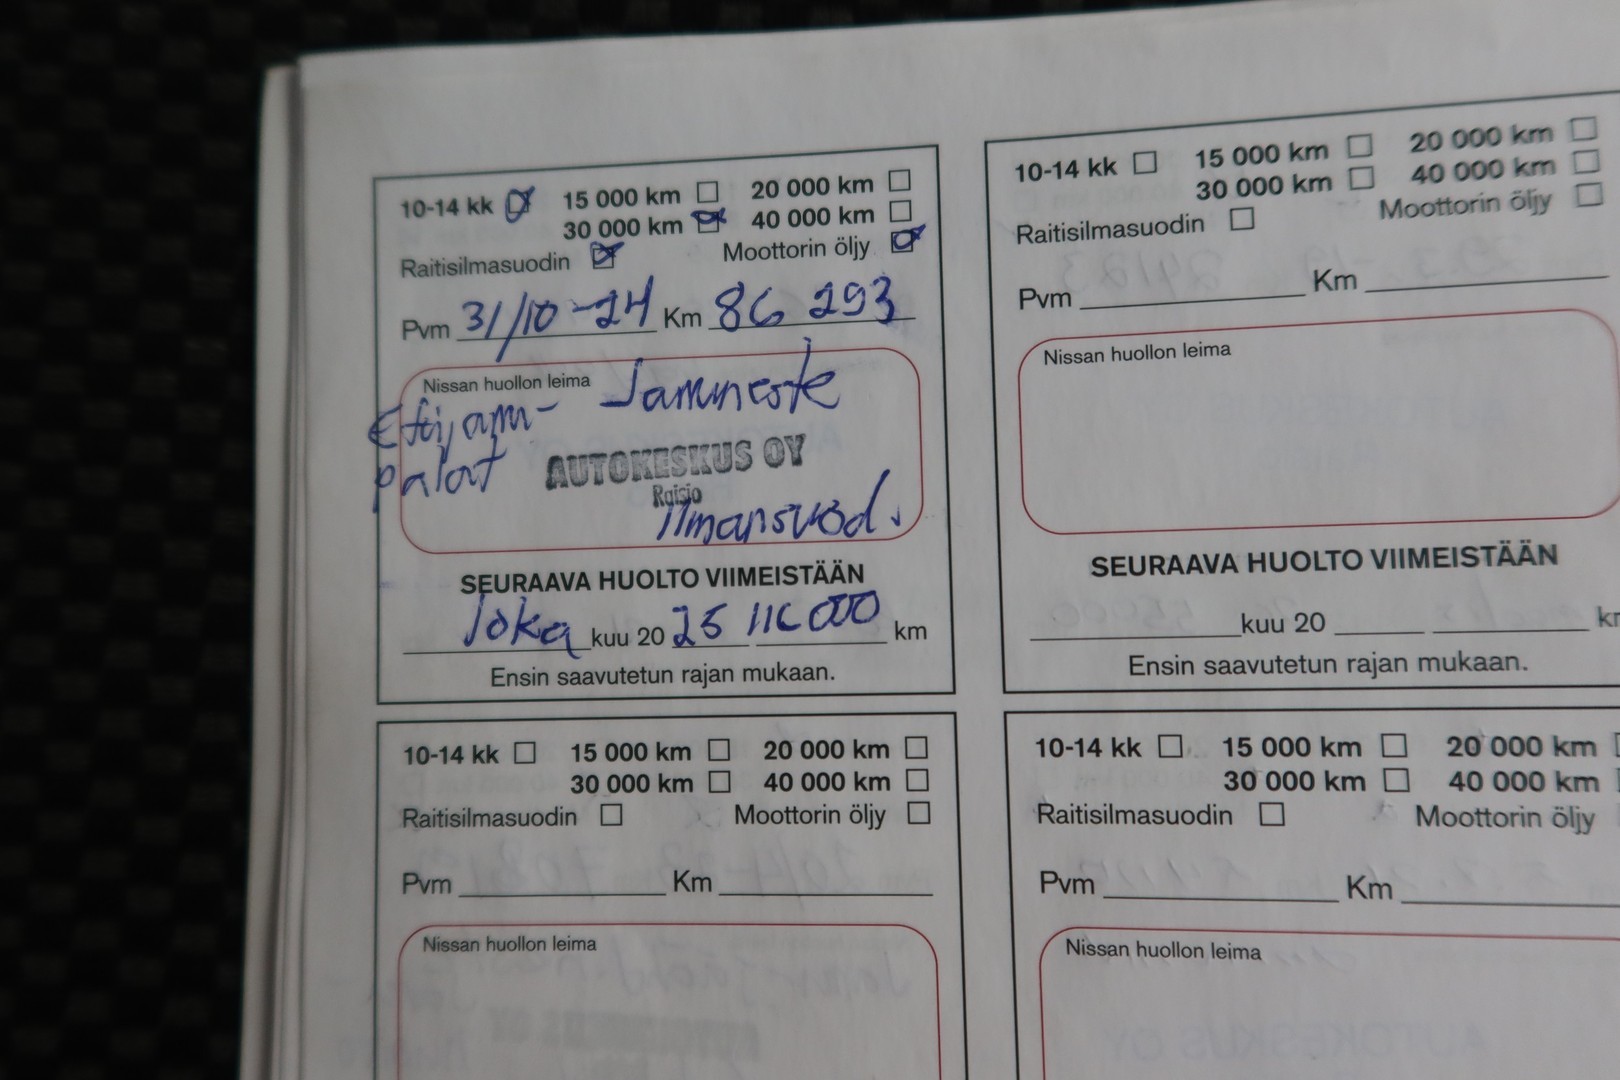 10-14 kk 15 000 km 20 000 km
30 000 km 40 000 km
Raitisilmasuodin Moottorin öljy
Pvm 31/10-24 Km 86 293
Nissan huollon leima Jarruneste
Etujarru-
palat
AUTOKESKUS OY
Raisio
ilmansuod.
SEURAAVA HUOLTO VIIMEISTÄÄN
loka kuu 20 25 116 000 km
Ensin saavutetun rajan mukaan.
10-14 kk 15 000 km 20 000 km
30 000 km 40 000 km
Raitisilmasuodin Moottorin öljy
Pvm Km
Nissan huollon leima
SEURAAVA HUOLTO VIIMEISTÄÄN
kuu 20
Ensin saavutetun rajan mukaan.
10-14 kk 15 000 km 20 000 km
30 000 km 40 000 km
Raitisilmasuodin Moottorin öljy
Pvm Km
Nissan huollon leima
10-14 kk 15 000 km 20 000 km
30 000 km 40 000 km
Raitisilmasuodin Moottorin öljy
Pvm Km
Nissan huollon leima